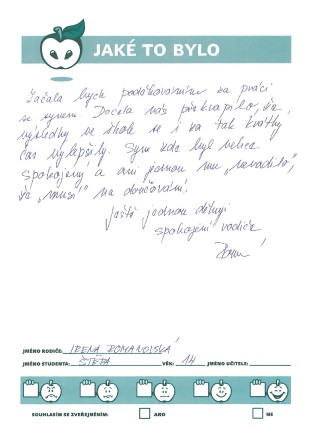 JAKÉ TO BYLO
Začala bych poděkováním za práci
se synem. Docela nás překvapilo, že
výsledky ve škole se i za tak krátký
čas vylepšily. Syn zde byl velice
spokojený a ani jednou mu "nevadilo",
že "musí" na doučování.
Ještě jednou děkuji
spokojení rodiče
JMÉNO RODIČE: IRENA ROMANOVSKÁ
JMÉNO STUDENTA: ŠTĚPA VĚK: 14 JMÉNO UČITELE:
SOUHLASÍM SE ZVEŘEJNĚNÍM: ANO NE